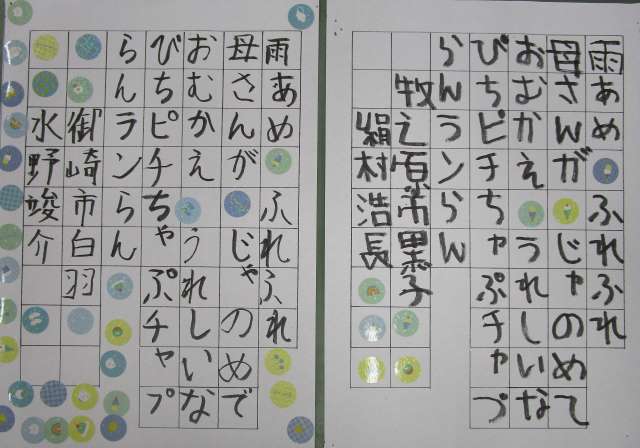 雨あめ ふれふれ
母さんが じゃのめて
おむかえ うれしいな
ぴちピチちャぷチャプ
らんランらん
牧之原市黒子
絹村浩長
雨あめ ふれふれ
母さんが じゃのめで
おむかえ うれしいな
びちピチちゃぷチャプ
らんランらん
御崎市白羽
水野竣介